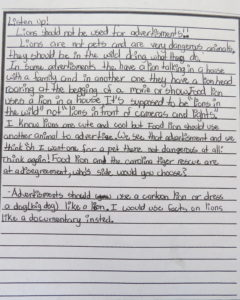 Listen up!
Lions should not be used for advertisments!!
Lions are not pets and are very dangerous animals,
they should be in the wild doing what they do.
In some advertisments they have a lion talking in a house
with a family and in another one they have a lion head
roaring at the begging of a movie or show. Food lion
uses a lion in a house It's supposed to be "Lions in
the wild" not "Lions in front of cameras and lights".
I know lions are cute and cool but food lion should use
another animal to advertise. We see that advertisment and we
think "oh I want one for a pet there not dangerous at all"
think again! Food lion and the carolina tiger rescue are
at a disagreement, who's side would you choose?
- Advertisments should use a cartoon lion or dress
a dog (big dog) like a lion. I would use facts on lions
like a documentary insted.